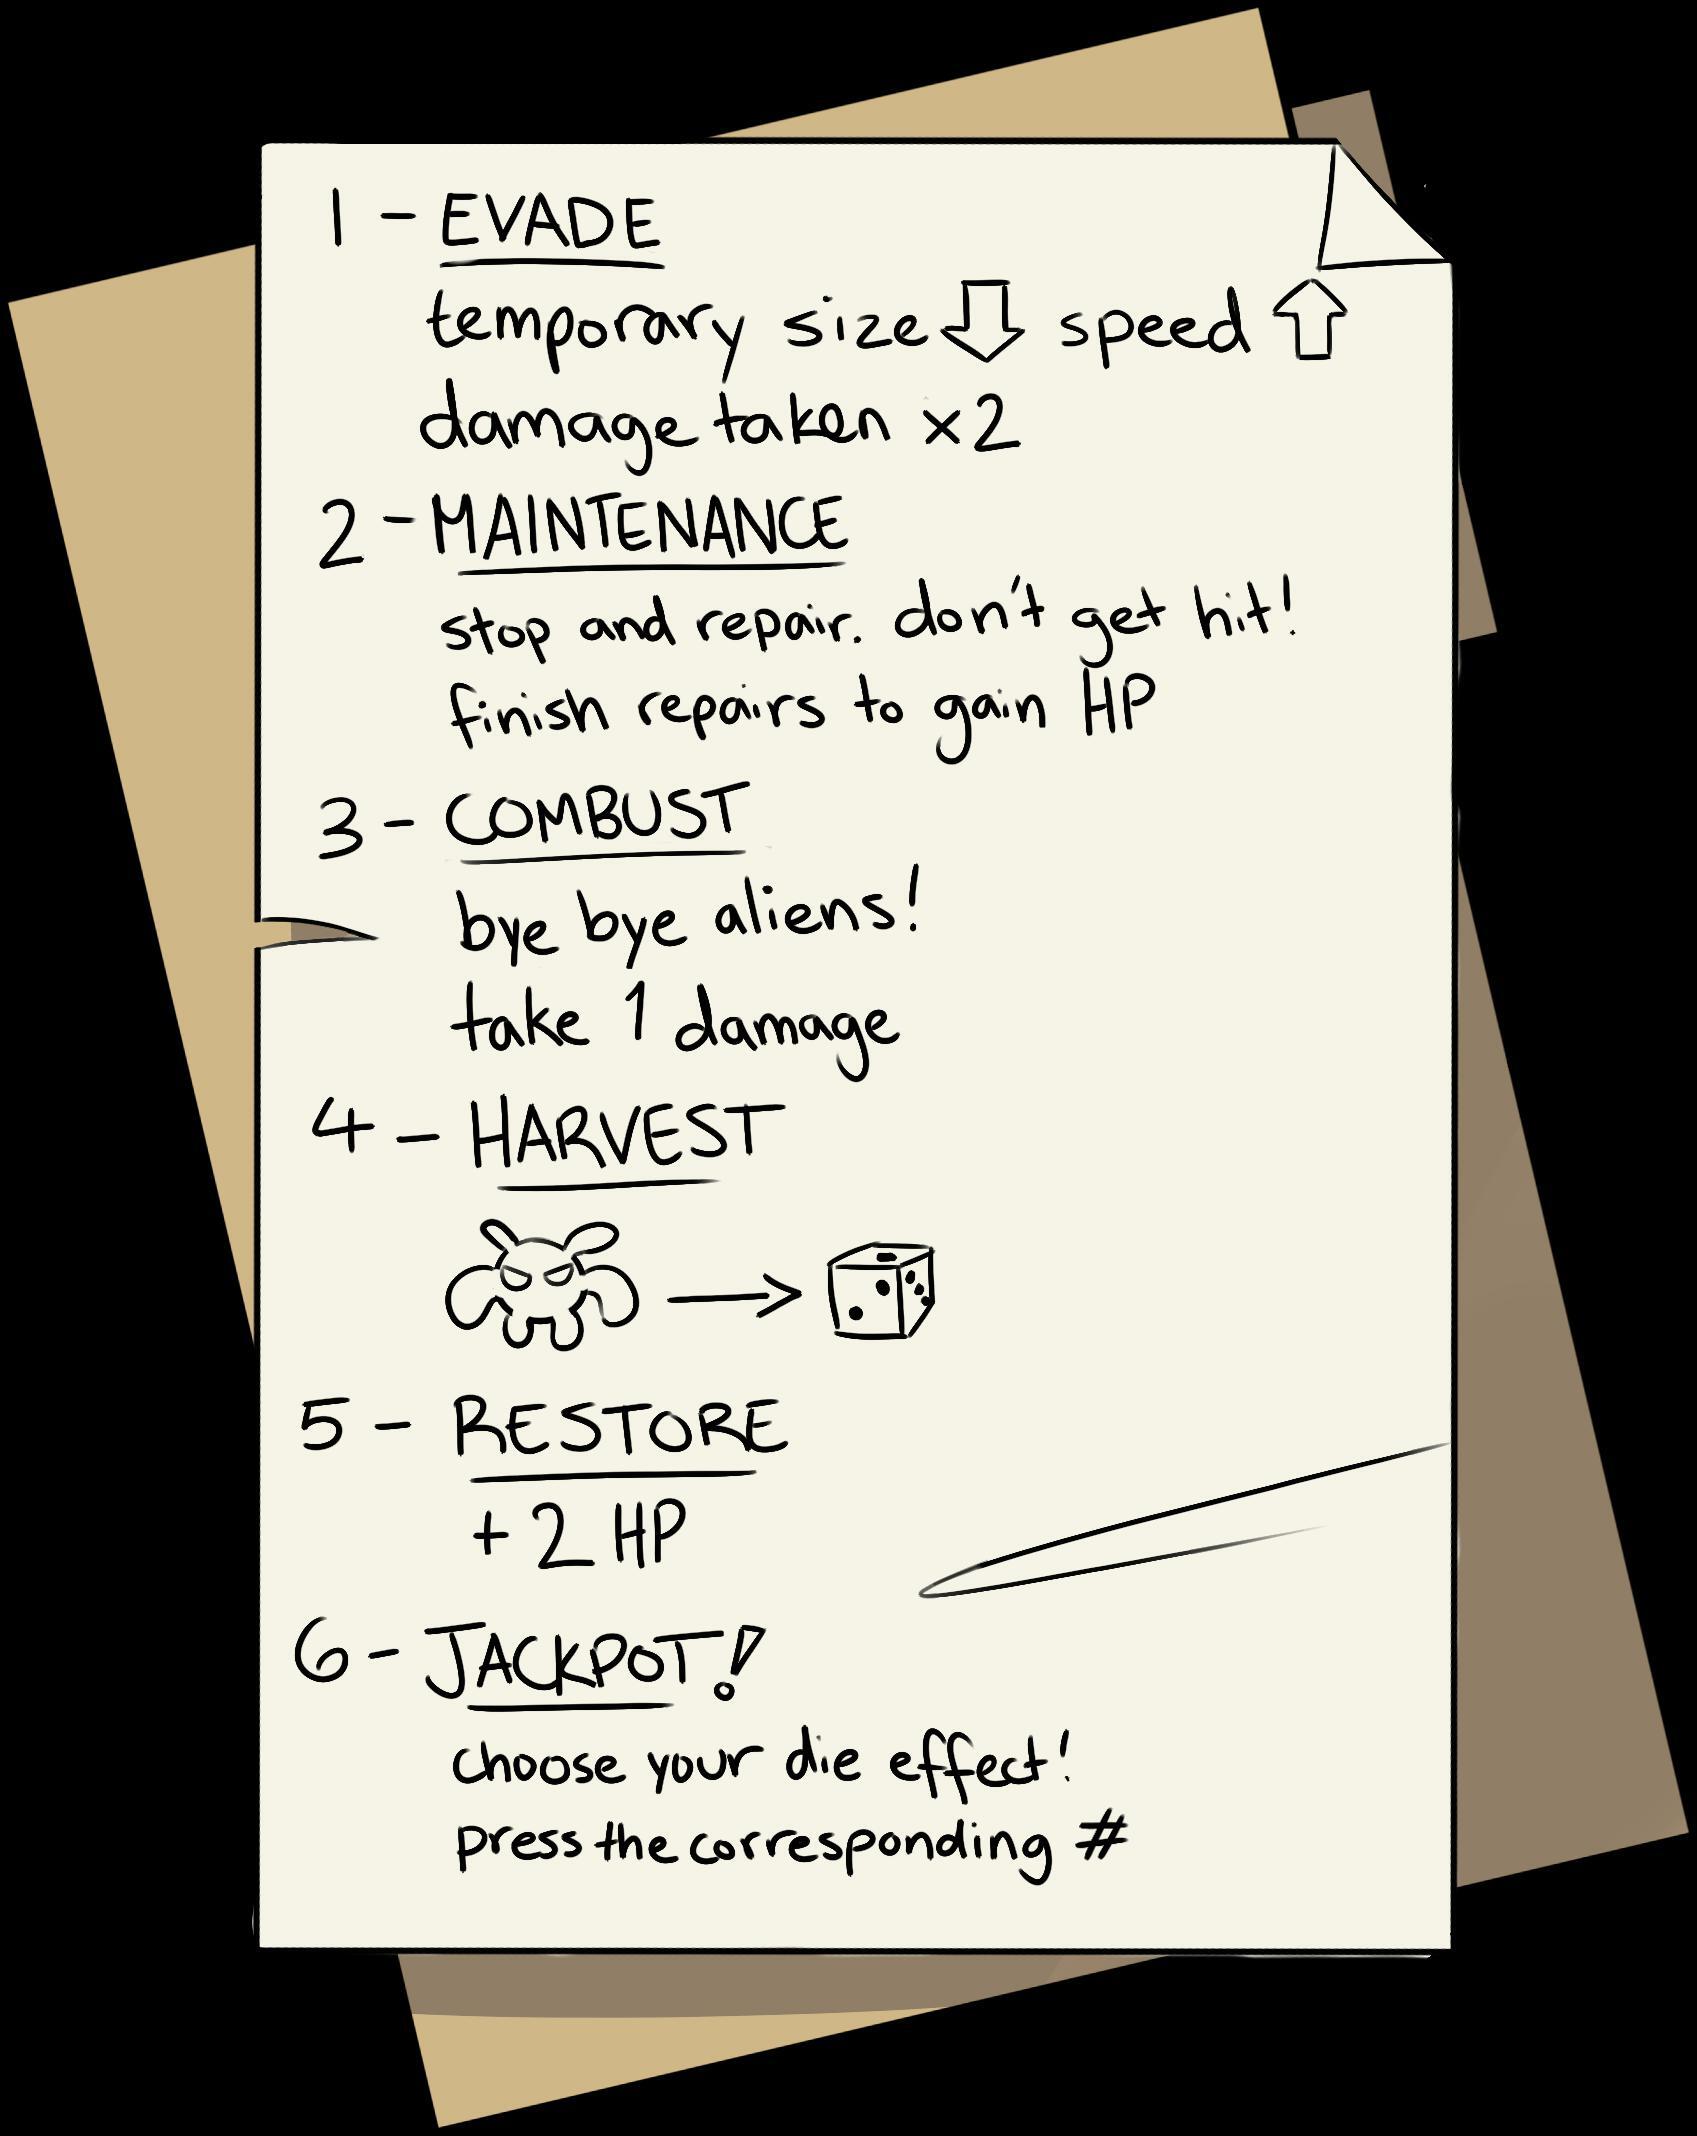 1 - EVADE
temporary size speed
damage taken x2
2 - MAINTENANCE
stop and repair. don't get hit!
finish repairs to gain HP
3 - COMBUST
bye bye aliens!
take 1 damage
4 - HARVEST
5 - RESTORE
+2 HP
6 - JACKPOT!
choose your die effect!
press the corresponding #